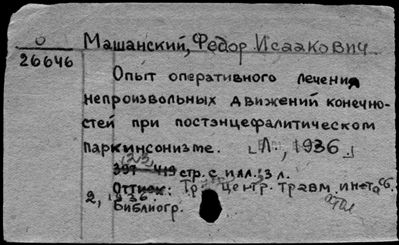 Машанский, Федор Исаакович
26646
Опыт оперативного лечения
непроизвольных движений конечно-
стей при постэнцефалитическом
паркинсонизме. Л., 1936.
397-419 стр. с илл., 3 л.
Оттиск: Тр. центр. травм. ин-та
2, 1936.
Библиогр.